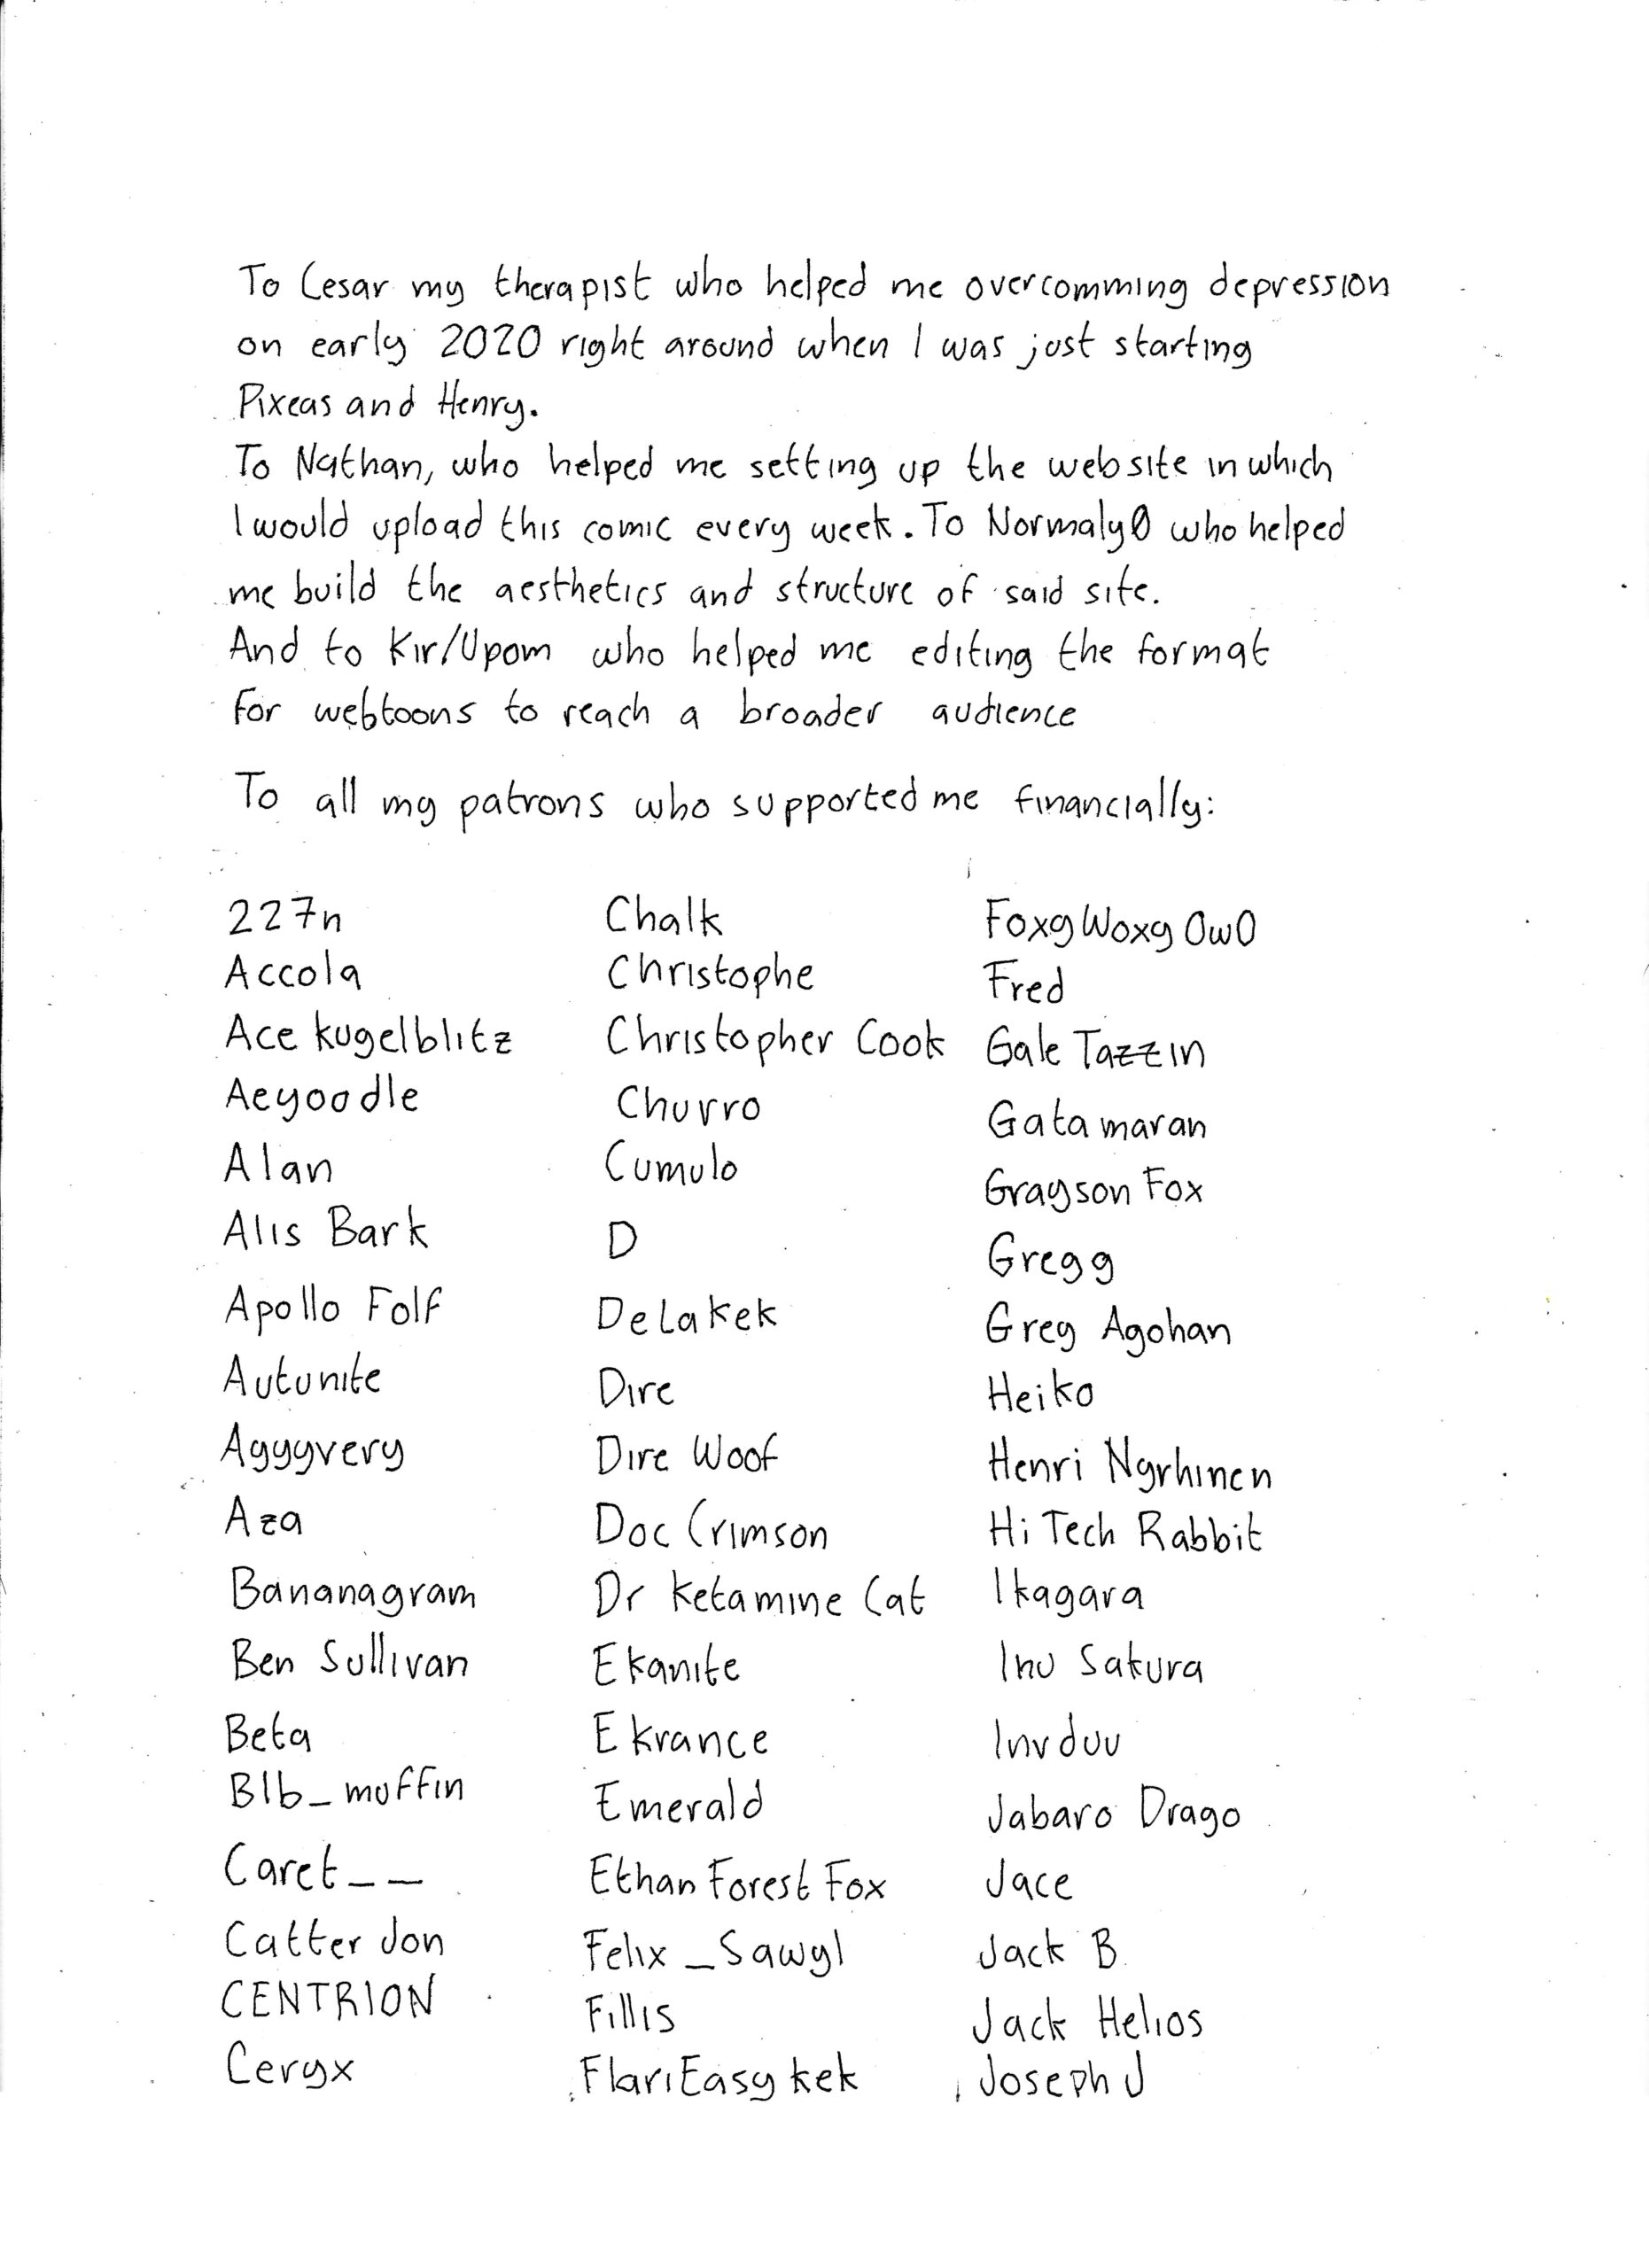 To Cesar my therapist who helped me overcomming depression
on early 2020 right around when I was just starting
Pixeas and Henry.
To Nathan, who helped me setting up the website in which
I would upload this comic every week. To Normaly0 who helped
me build the aesthetics and structure of said site.
And to Kir/Upom who helped me editing the format
for webtoons to reach a broader audience
To all my patrons who supported me financially:
227n
Accola
Ace kugelblitz
Aeyoodle
Alan
Alis Bark
Apollo Folf
Autunite
Ayyyvery
Aza
Bananagram
Ben Sullivan
Beta
Blb_muffin
Caret__
Catter Jon
CENTRION
Ceryx
Chalk
Christophe
Christopher Cook
Churro
Cumulo
D
DeLaKek
Dire
Dire Woof
Doc Crimson
Dr Ketamine Cat
Ekanite
Ekrance
Emerald
Ethan Forest Fox
Felix_Sawyl
Fillis
FlariEasykek
Foxy Woxy OwO
Fred
Gale Tazzin
Gatamaran
Grayson Fox
Gregg
Greg Agohan
Heiko
Henri Nyrhinen
Hi Tech Rabbit
Ikagara
Inu Sakura
Invduu
Jabaro Drago
Jace
Jack B
Jack Helios
Joseph J